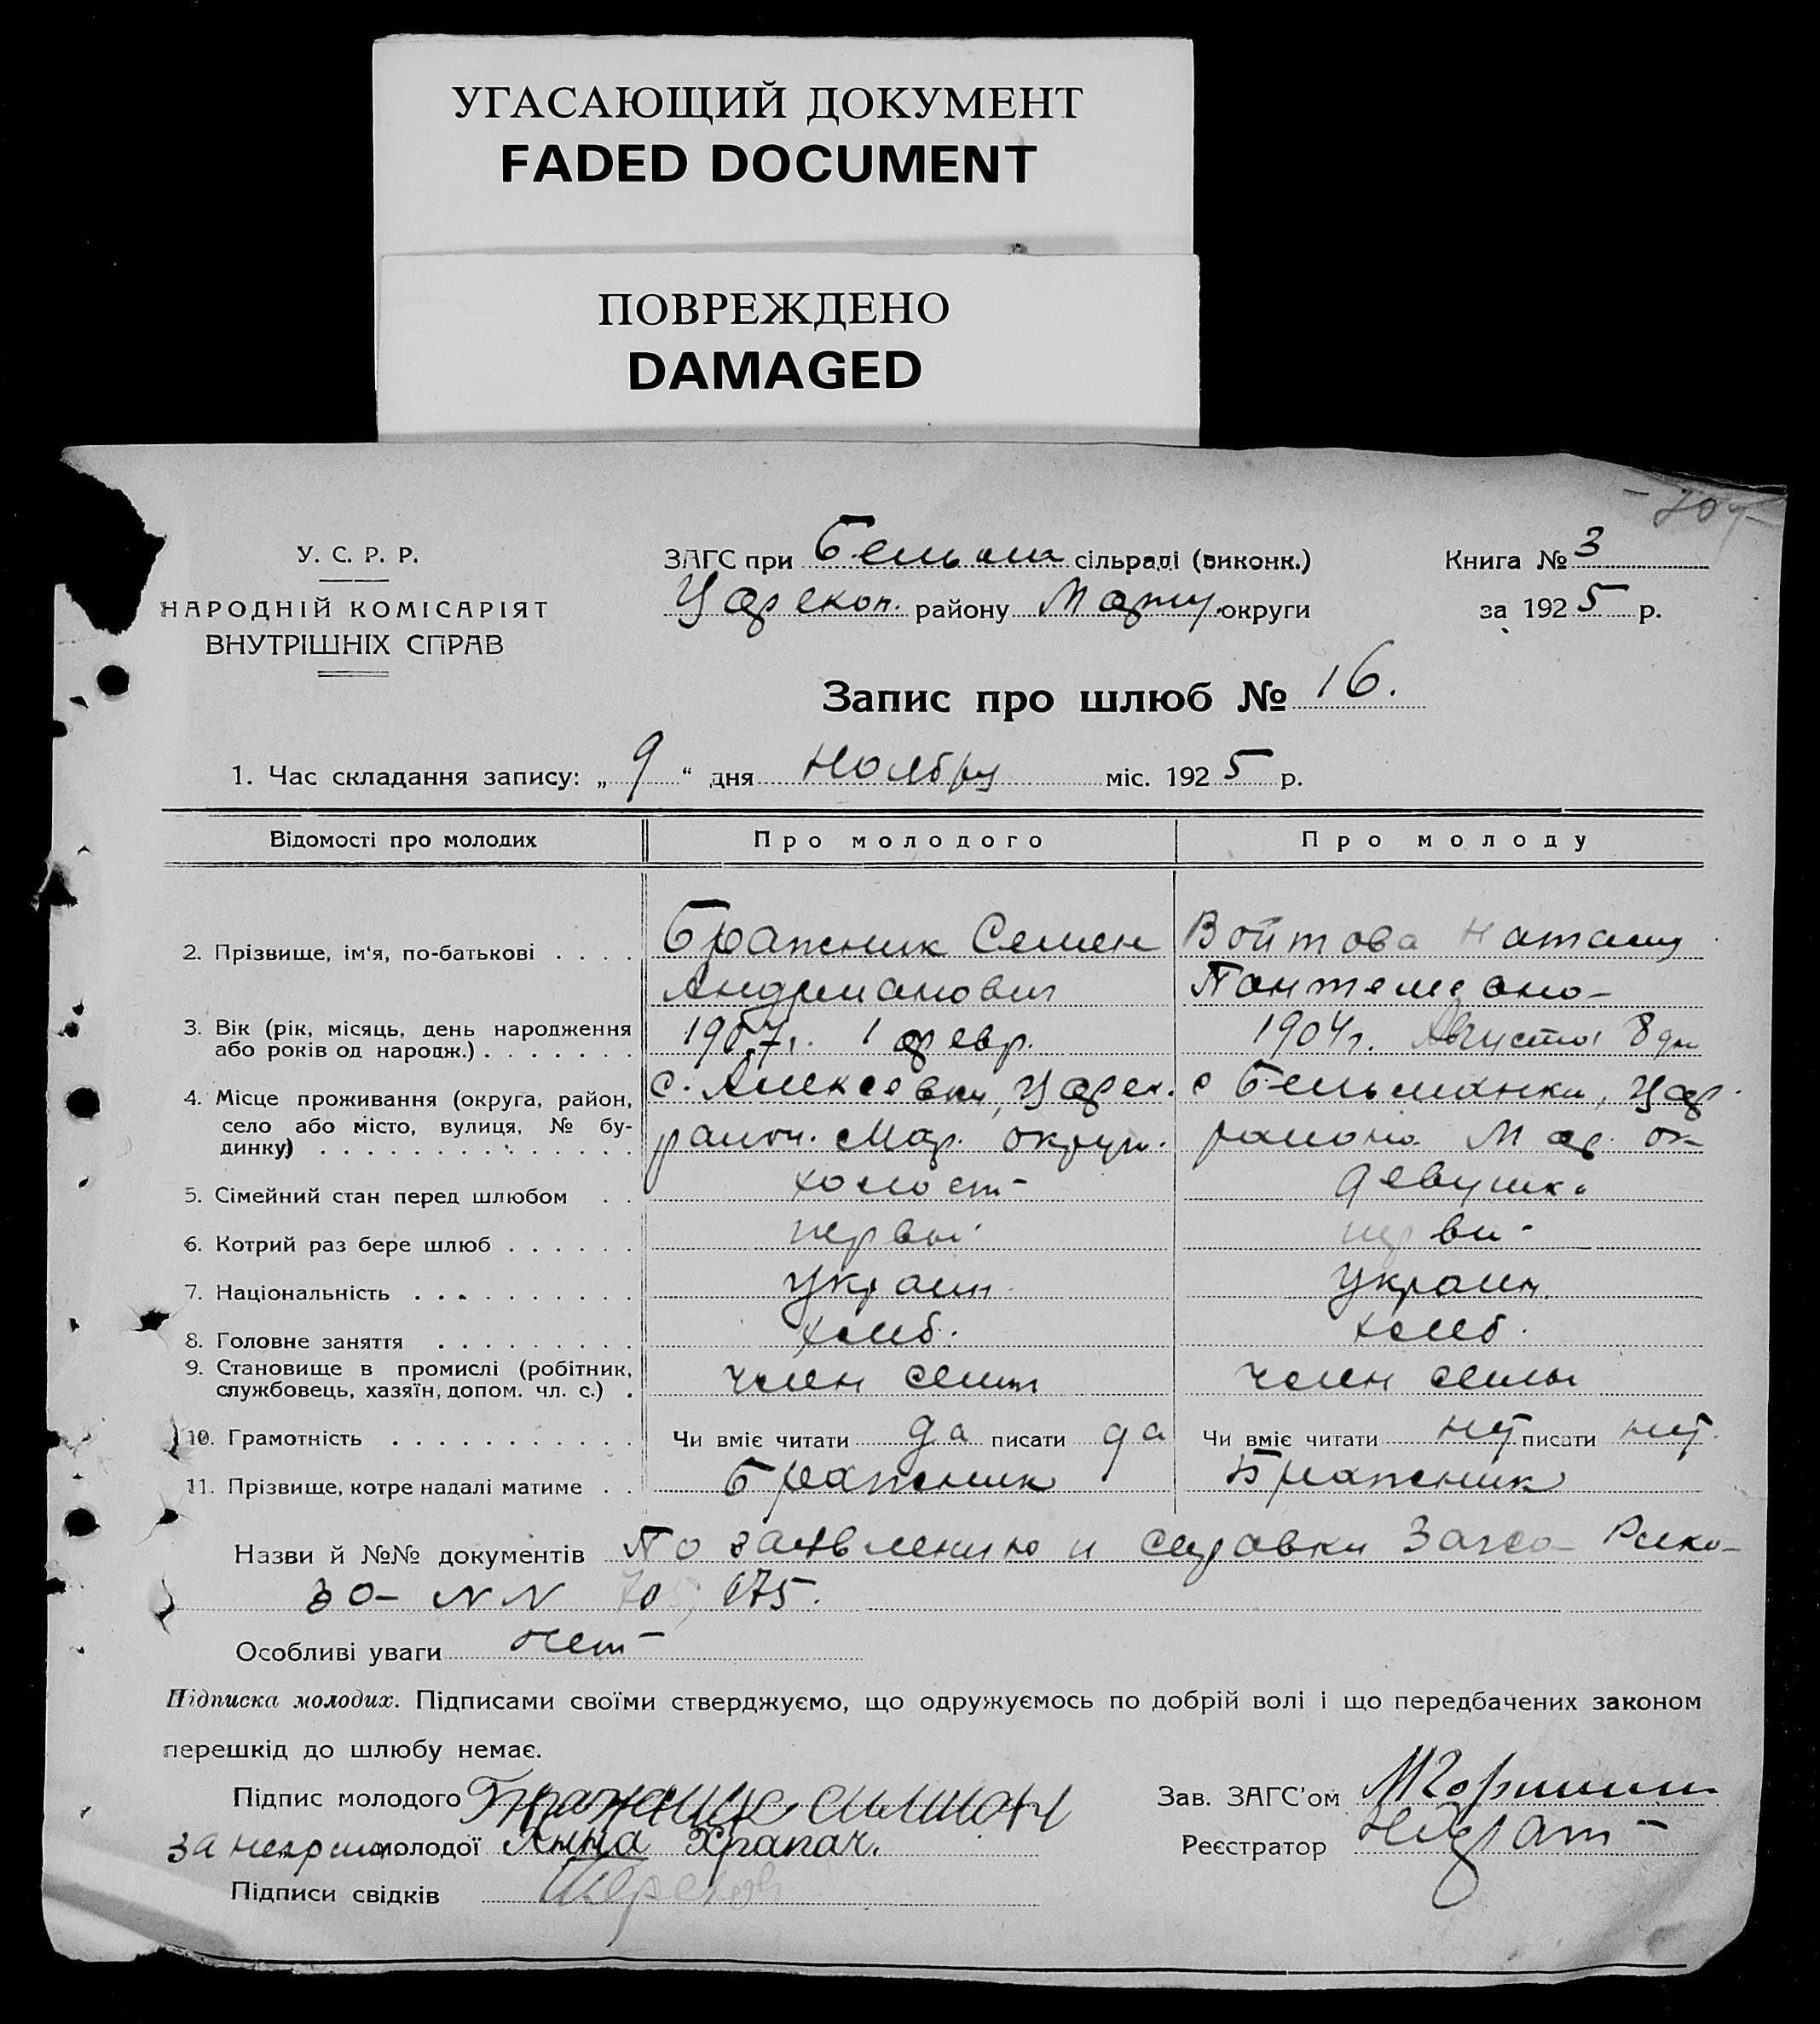 УГАСАЮЩИЙ ДОКУМЕНТ
FADED DOCUMENT
ПОВРЕЖДЕНО
DAMAGED
У. С. Р. Р.
НАРОДНІЙ КОМІСАРІЯТ
ВНУТРІШНІХ СПРАВ
ЗАГС при Бельман сільраді (виконк.)
Царекон. району Мариу. округи
Книга № 3
за 1925 р.
Запис про шлюб № 16.
1. Час складання запису: „ 9 “ дня Ноябру міс. 1925 р.
Відомості про молодих
Про молодого
Про молоду
2. Прізвище, ім‘я, по-батькові . . . .
Бражник Семен
Андрианович
Войтова Наташу
3. Вік (рік, місяць, день народження
або років од народж.) . . . . . . .
1 февр.
1904 г. Августа 8 дн
4. Місце проживання (округа, район,
село або місто, вулиця, № бу-
динку) . . . . . . . . . . . . . .
с. Алексеевки, Царек.
район. Мар. округи.
с Бельманки, Цар.
района Мар. ок-
5. Сімейний стан перед шлюбом . .
холост
девушка
6. Котрий раз бере шлюб . . . . . .
первый
перви
7. Національність . . . . . . . . . .
Украин.
Украин.
8. Головне заняття . . . . . . . . .
хлеб.
хлеб.
9. Становище в промислі (робітник,
службовець, хазяїн, допом. чл. с.) .
член семьи
член семьи
10. Грамотність . . . . . . . . . . .
Чи вміє читати да писати да
Чи вміє читати нет писати нет.
11. Прізвище, котре надалі матиме . .
Бражник
Бражник
Назви й №№ документів По заявлению и справки Загса
NN 705, 675.
Особливі уваги нет
Підписка молодих. Підписами своїми стверджуємо, що одружуємось по добрій волі і що передбачених законом
перешкід до шлюбу немає.
Підпис молодого Бражник
за неграм. молодої Анна Храпач.
Підписи свідків
Зав. ЗАГС’ом
Реєстратор